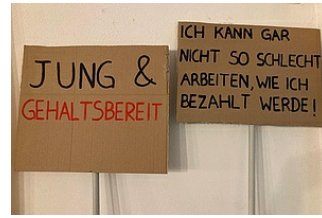 JUNG &
GEHALTSBEREIT
ICH KANN GAR
NICHT SO SCHLECHT
ARBEITEN, WIE ICH
BEZAHLT WERDE!